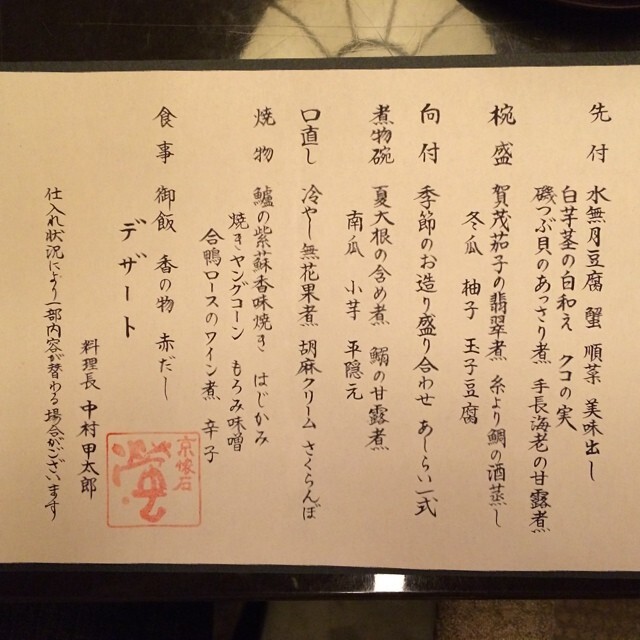 先付 水無月豆腐 蟹 順菜 美味出し
白芋茎の白和え クコの実
磯つぶ貝のあっさり煮 手長海老の甘露煮
椀盛 賀茂茄子の翡翠煮 糸より鯛の酒蒸し
冬瓜 柚子 玉子豆腐
向付 季節のお造り盛り合わせ あしらい一式
煮物碗 夏大根の含め煮 鰯の甘露煮
南瓜 小芋 平隠元
口直し 冷やし無花果煮 胡麻クリーム さくらんぼ
焼物 鱸の紫蘇香味焼き はじかみ
焼きヤングコーン もろみ味噌
合鴨ロースのワイン煮 辛子
食事 御飯 香の物 赤だし
デザート
料理長 中村甲太郎
仕入れ状況により一部内容が替わる場合がございます
京懐石